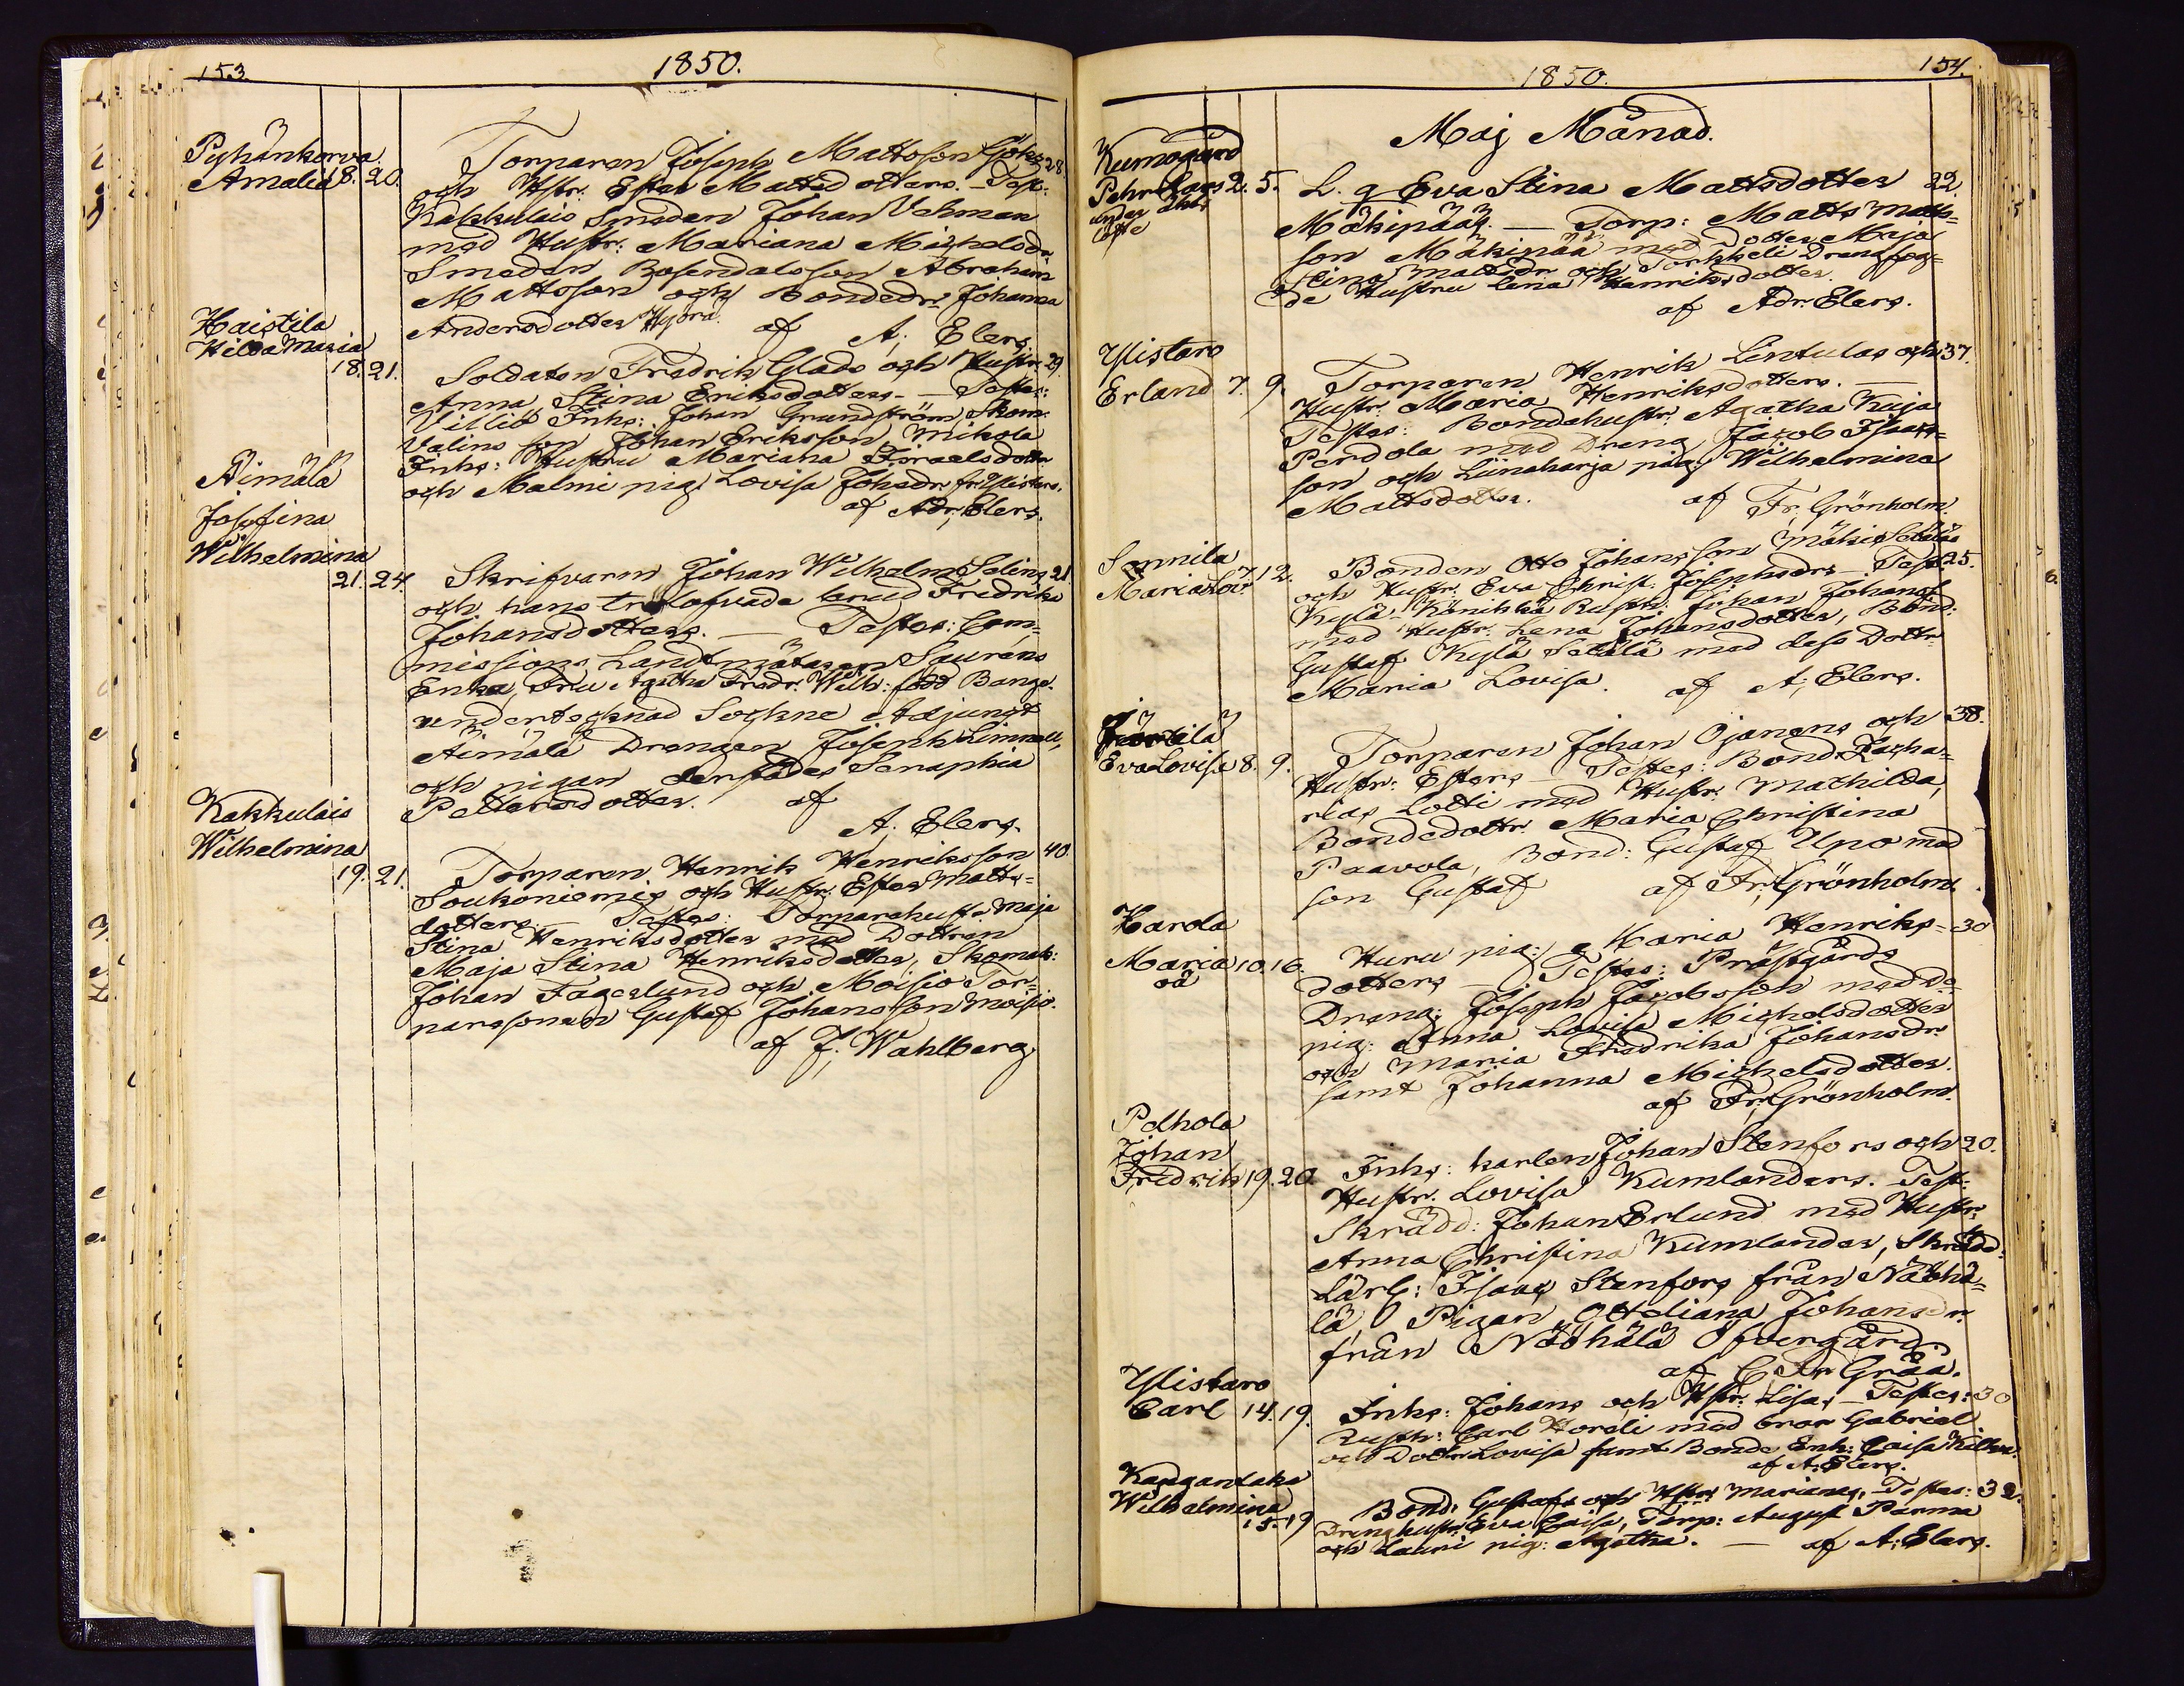 153.
1850.
Pyhänkorva
Amalia 18. 20.
Torparen Joseph Mattsson 28.
och Hstr. Ester Mattsdotters. - Test:
Kakkulais Smeden Johan Vehman
med Hustr: Mariana Michelsdr
Smeden Rosendals son Abraham
Mattsson och Bondedr. Johanna
Andersdotter Hyora.
af A; Elers.
Haistila
Hilda Maria
18. 21.
Soldaten Fredrik Glads och Hustr. 29.
Anna Stina Eriksdotters. - Testes:
Villiö Inhs: Johan Grundström, Skom:
Valins son Johan Eriksson, Mikola
Inhs: Hustru Mariana Israelsdotter
och Malmi pig: Lovisa Johsdr. fr. Ylistaro.
af Adr; Elers.
Äimälä
Josefina
Wilhelmina
21. 24.
Skrifvaren Johan Wilhelm Selins 21.
och hans trolofvade brud Fredrika
Johansdotters. — Testes: Com-
missions Landtmätaren Saurens
Enka, Fru Agatha Fredr. Wilh: född Bange.
undertecknad Sockne Adjunct
Äimälä Drengen Joseph Linnell,
och pigan dersades Seraphia
Pettersdotter. af
A; Elers.
Kakkulais
Wilhelmina
19. 21.
Torparen Henrik Henriksson 40.
Soukoniemis och Hustr. Ester Matts-
dotters. — Testes: Torparehust. Maja
Stina Henriksdotter med Dottren
Maja Stina Henriksdotter, Skomak:
Johan Fagerlund och Moisio Tor-
paresonen Gustaf Johansson Moisio.
af J; Wahlberg.
154.
1850.
Maj Månad.
Kumogård
Pehr Lars 2. 5.
L. q Eva Stina Mattsdotter 22.
Mäkipääs. — Torp: Matts Matts-
son Mäkipää med Dotter Maja
Stina Mattsdr. och Torkkeli Drengfog-
de Hustru Lena Henriksdotter.
af Adr. Elers.
Ylistaro
Erland 7. 9.
Torparen Henrik Lintulas och 37.
Hustr. Maria Henriksdotters. —
Testes: Bondehustr. Agatha Kuja
Perdola med Dreng Jacob Isaks-
son och Liinaharja pig: Wilhelmina
Mattsdotter.
af Fr. Grönholm.
Sonnila
Maria Lov: 7. 12.
Bonden Otto Johansson Mäkis Setälä
och Hustr. Eva Christ: Josephsdrs - Test. 25.
Kylä-Könikkä Rusth: Johan Johans
med Hustr. Lena Johansdotter, Bond:
Gustaf Kylä Setälä med dess Dottr.
Maria Lovisa. af A; Elers.
Eva Lovisa 8. 9.
Torparen Johan Ojanens och 38.
Hustr: Esters — Testes: Bond: Zacha-
rias Lotti med Hustr. Mathilda,
Bondedottr. Maria Christina
Paavola, Bond: Gustaf Upo med
son Gustaf af Fr. Grönholm.
Harola
Maria 10. 16.
oä
Huru pig: Maria Henriks- 30
dotters — Testes: Prästgårds
Dreng: Joseph Jacobsson med do
pig: Anna Lovisa Michelsdotter
och Maria Fredrika Johansdr.
samt Johanna Michelsdotter.
af Fr. Grönholm.
Pelhola
Johan
Fredrik 19. 20.
Inhs: karlen Johan Stenfors och 20.
Hustr. Lovisa Kumlanders. Test:
Skrädd: Johan Erlund med Hustr:
Anna Christina Kumlander, Skrädd:
lärl: Isaac Stenfors från Näyhä-
lä, Pigan Ottiliana Johansdr.
från Näyhälä Öfvergård.
af C Fr Gråå.
Ylistaro
Carl 14. 19.
Inhs: Johans och Hstr. Lisas - Testes: 30
Rusth: Carl Hordi med bror Gabriel
o Dottr Lovisa samt Bonde Enk: Caisa Kilku.
af A; Elers.
Kaagarlaka
Wilhelmina
15. 19
Bond: Gustafs och Hstr. Marianas. - Testes: 32.
Drenghustr Eva Caisa, Torp: August Parma
och Lauri pig: Agatha. — af A; Elers.